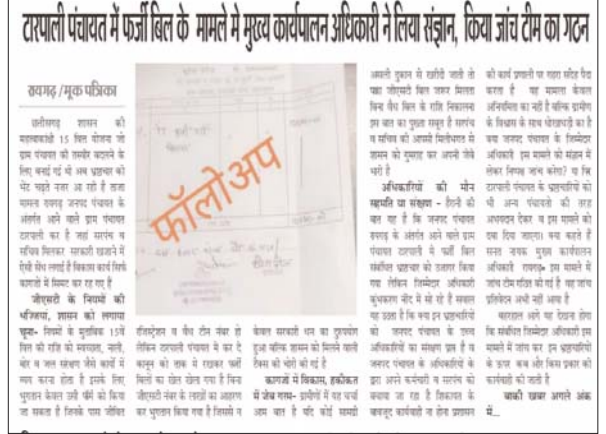 टारपाली पंचायत में फर्जी बिल के मामले मे मुख्य कार्यपालन अधिकारी ने लिया संज्ञान, किया जांच टीम का गठन
रायगढ़/मूक पत्रिका
छत्तीसगढ़ शासन की
महत्वाकांक्षी 15 वित्त योजना जो
ग्राम पंचायत की तस्वीर बदलने के
लिए बनाई गई थी अब भ्रष्टाचार की
भेंट चढ़ते नजर आ रही है ताजा
मामला रायगढ़ जनपद पंचायत के
अंतर्गत आने वाले ग्राम पंचायत
टारपाली का है जहां सरपंच व
सचिव मिलकर सरकारी खजाने में
ऐसी सेंध लगाई है विकास कार्य सिर्फ
कागजों में सिमट कर रह गए है
जीएसटी के नियमों की
धज्जियां, शासन को लगाया
चूना- नियमों के मुताबिक 15वें
वित्त की राशि को स्वच्छता, नाली,
बोर व जल संरक्षण जैसे कार्यों में
व्यय करना होता है इसके लिए
भुगतान केवल उसी फर्म को किया
जा सकता है जिनके पास जीवित
फॉलोअप
रजिस्ट्रेशन व वैध टीन नंबर हो
लेकिन टारपाली पंचायत मे कर दे
कानून को ताक मे रखकर फर्जी
बिलों का खेल खेला गया है बिना
जीएसटी नंबर के लाखों का आहरण
कर भुगतान किया गया है जिससे न
केवल सरकारी धन का दुरुपयोग
हुआ बल्कि शासन को मिलने वाली
टैक्स की चोरी की गई है
कागजों में विकास, हकीकत
में जेब गरम- ग्रामीणों में यह चर्चा
आम बात है यदि कोई सामग्री
असली दुकान से खरीदी जाती तो
पक्का जीएसटी बिल जरूर मिलता
बिना वैध बिल के राशि निकालना
इस बात का पुख्ता सबूत है सरपंच
व सचिव की आपसी मिलीभगत से
शासन को गुमराह कर अपनी जेबे
भरी है
अधिकारियों की मौन
सहमति या संरक्षण - हैरानी की
बात यह है कि जनपद पंचायत
रायगढ़ के अंतर्गत आने वाले ग्राम
पंचायत टारपाली मे फर्जी बिल
संबंधित भ्रष्टाचार को उजागर किया
गया लेकिन जिम्मेदार अधिकारी
कुंभकरण नींद में सो रहे है सवाल
यह उठता है कि क्या इन भ्रष्टाचारियों
को जनपद पंचायत के उच्च
अधिकारियों का संरक्षण प्राप्त है व
जनपद पंचायत के अधिकारियों के
द्वारा अपने कर्मचारी व सरपंच को
बचाया जा रहा है शिकायत के
बावजूद कार्यवाही ना होना प्रशासन
की कार्य प्रणाली पर गहरा संदेह पैदा
करता है यह मामला केवल
अनियमितता का नहीं है बल्कि ग्रामीण
के विश्वास के साथ धोखाधड़ी का है
क्या जनपद पंचायत के जिम्मेदार
अधिकारी इस मामले को संज्ञान में
लेकर निष्पक्ष जांच करेगा? या फिर
टारपाली पंचायत के भ्रष्टाचारियों को
भी अन्य पंचायतो की तरह
अभयदान देकर व इस मामले को
दबा दिया जाएगा। क्या कहते हैं
सनत नायक मुख्य कार्यपालन
अधिकारी रायगढ़- इस मामले में
जांच टीम गठित की गई है वह जांच
प्रतिवेदन अभी नहीं आया है
बहरहाल आगे यह देखना होगा
कि संबंधित जिम्मेदार अधिकारी इस
मामले में जांच कर इन भ्रष्टाचारियों
के ऊपर कब और किस प्रकार की
कार्यवाही की जाती है
बाकी खबर अगले अंक
में...